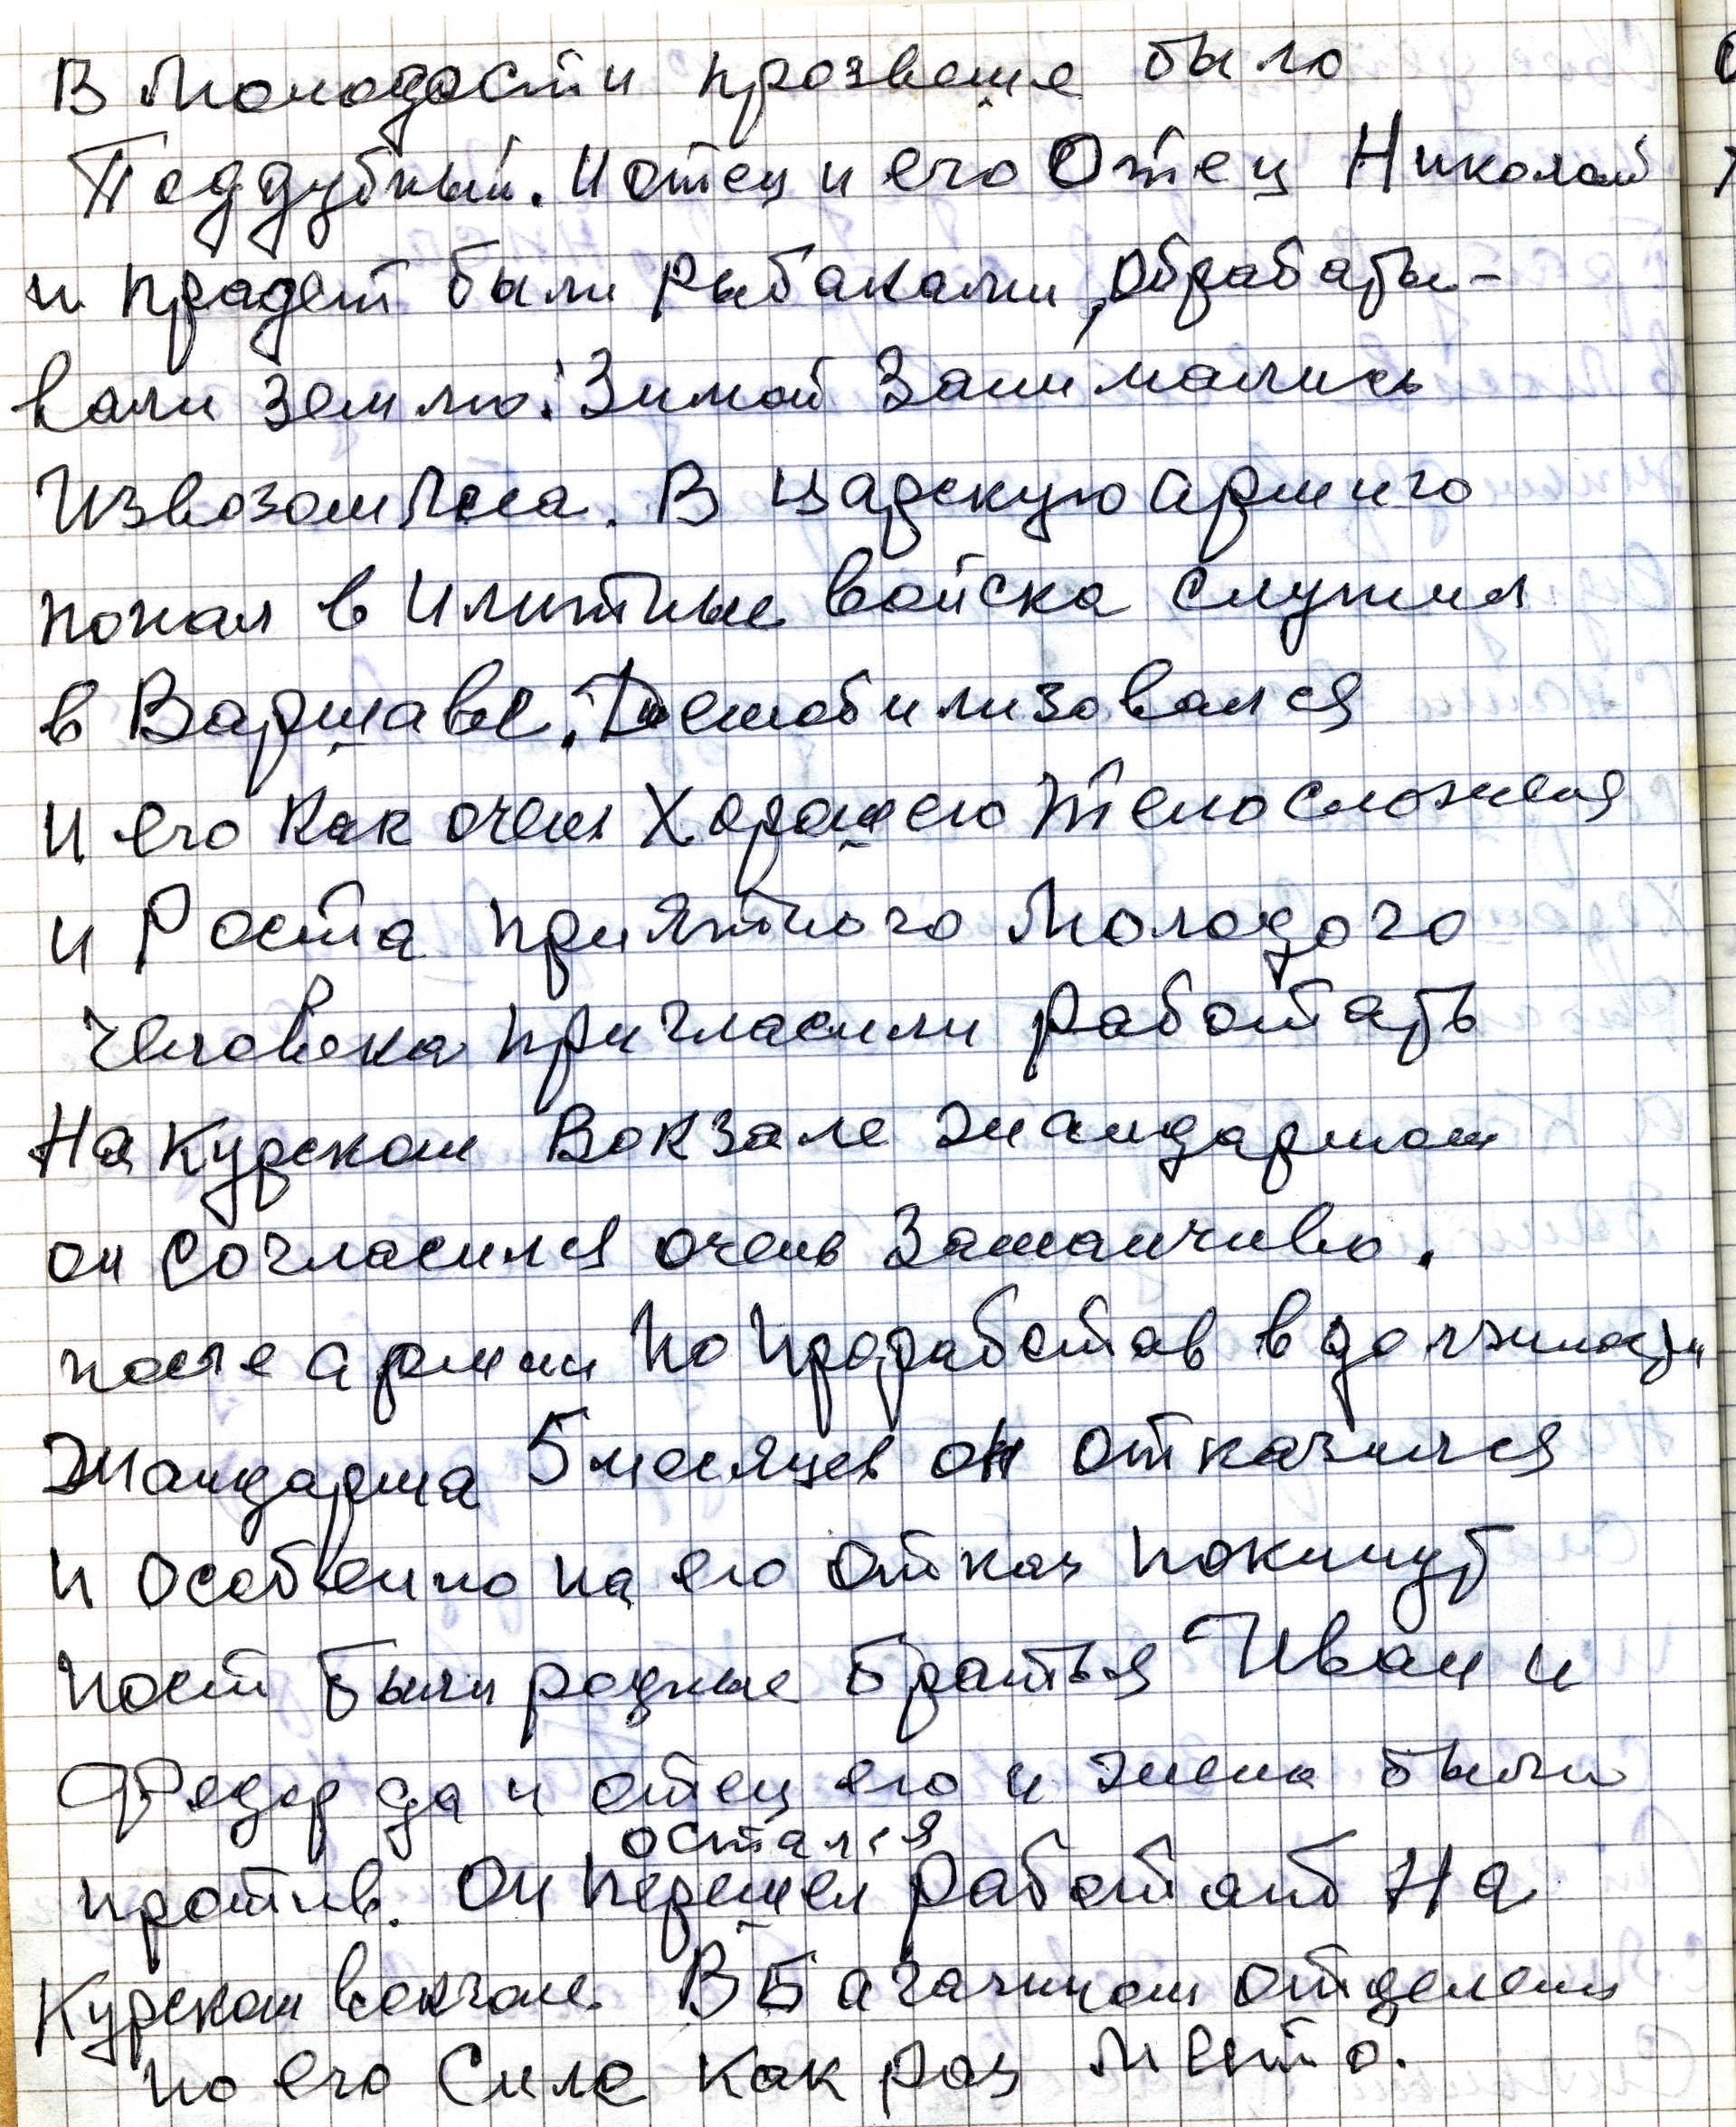 В Молодости прозвеще было
Поддубный. И отец и его Отец Николай
и прадет были рыбаками, обрабаты-
вали землю: Зимой Занимались
Извозом Леса. В царскую армию
попал в Илитные войска служил
в Варшаве. Демобилизовался
и его как очень Хорошего телосложеня
и Роста приятного Молодого
человека пригласили работать
На Курском Вокзале жандармом
он согласился очень Заманчиво.
после армии Но проработав в должности
Жандарма 5 месяцев он отказался
и особенно на его отказ покинуть
пост были родные братья Иван и
Федор да и отец его и жена были
остался
против. Он перешел работать На
Курском вокзале. В Багажном отделени
по его Силе как раз Место.